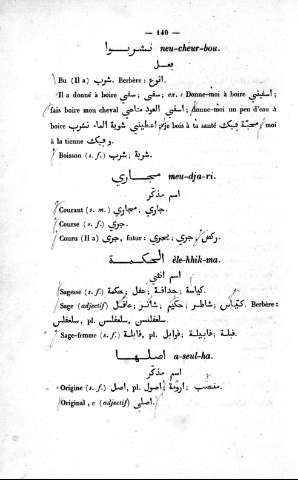 — 140 —
نشربوا neu-cheur-bou.
فعل
Bu (Il a) شرب. Berbère: انوع.
Il a donné à boire سفى; سقى; ex. Donne-moi à boire اسقيني;
fais boire mon cheval اسقي العود متاعي; donne-moi un peu d'eau à
boire اعطيني شوية الماء نشرب; je bois à ta santé محبة فيك; moi
à la tienne وفيك.
Boisson (s. f.) شربة; شرب.
مجاري meu-dja-ri.
اسم مذكر
Courant (s. m.) جاري, مجاري.
Course (s. f.) جري.
Couru (Il a) جرى, futur: يجري; جري; ركض.
الحكمة èle-khik-ma.
اسم انثى
Sagesse (s. f.) حكمة; عقل; حداقة; كياسة.
Sage (adjectif) عاقل; شاطر; حكيم; كياس. Berbère:
سلعفلس, pl. سلعفلسن.
Sage-femme (s. f.) قابلة, pl. فوابل; قابيلة; قبلة.
اصلها a-seul-ha.
اسم مذكر
Origine (s. f.) اصل, pl. اصول; ارومة; منصب.
Original, e (adjectif) اصلي.